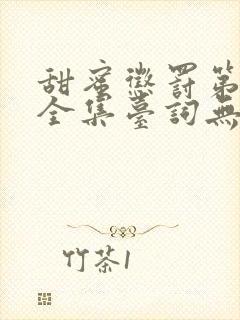 甜蜜懲罰第
全集臺詞無
竹茶1